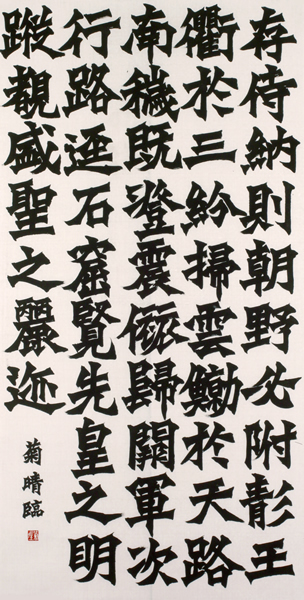 存侍納則朝野必附彰王
衢於三紛掃雲鯨於天路
南穢既澄震旅歸闕軍次
行路逕石窟覽先皇之明
蹤覩盛聖之麗迹
菊晴臨